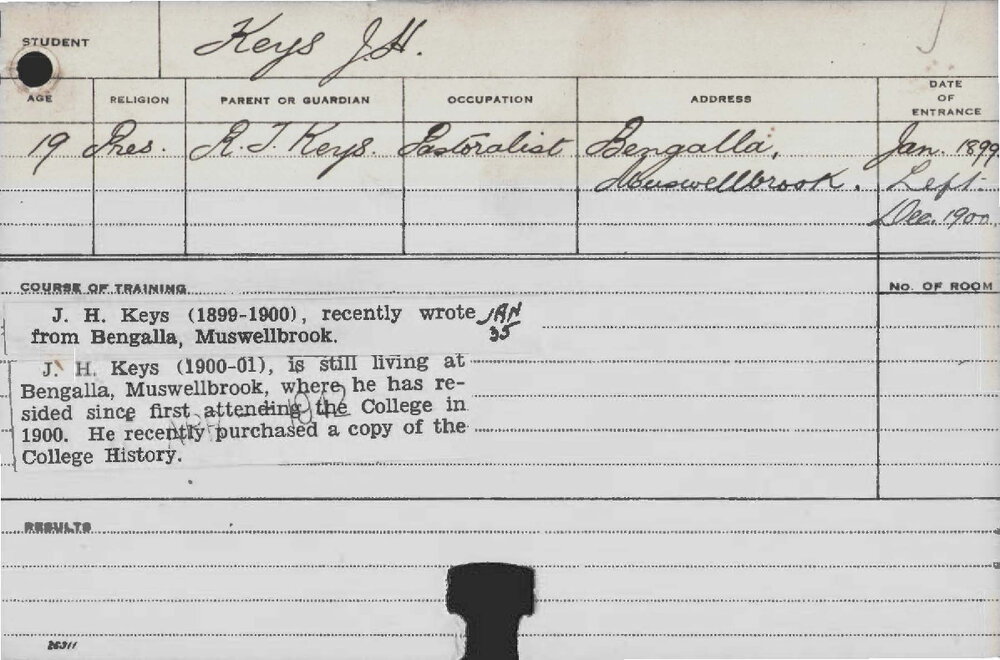 STUDENT
Keys J. H.
AGE
RELIGION
PARENT OR GUARDIAN
OCCUPATION
ADDRESS
DATE
OF
ENTRANCE
19 Pres. R. J. Keys. Pastoralist Bengalla, Jan. 1899
Muswellbrook. Left
Dec. 1900
COURSE OF TRAINING
No. OF ROOM
J. H. Keys (1899-1900), recently wrote
from Bengalla, Muswellbrook.
JAN
35
J. H. Keys (1900-01), is still living at
Bengalla, Muswellbrook, where he has re-
sided since first attending the College in
1900. He recently purchased a copy of the
College History.
1942
RESULTS